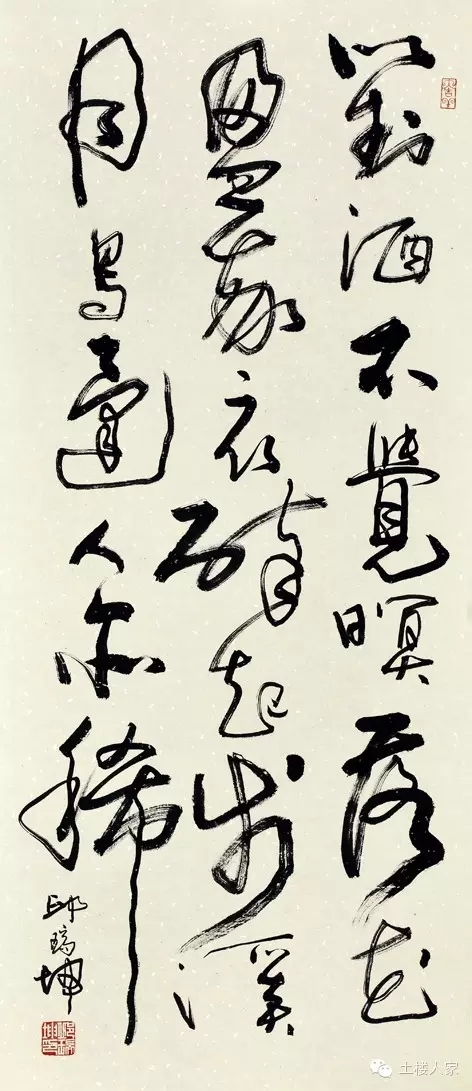 對酒不覺暝落花
盈我衣醉起步溪
月鳥還人亦稀
邱瑞坤
土楼人家